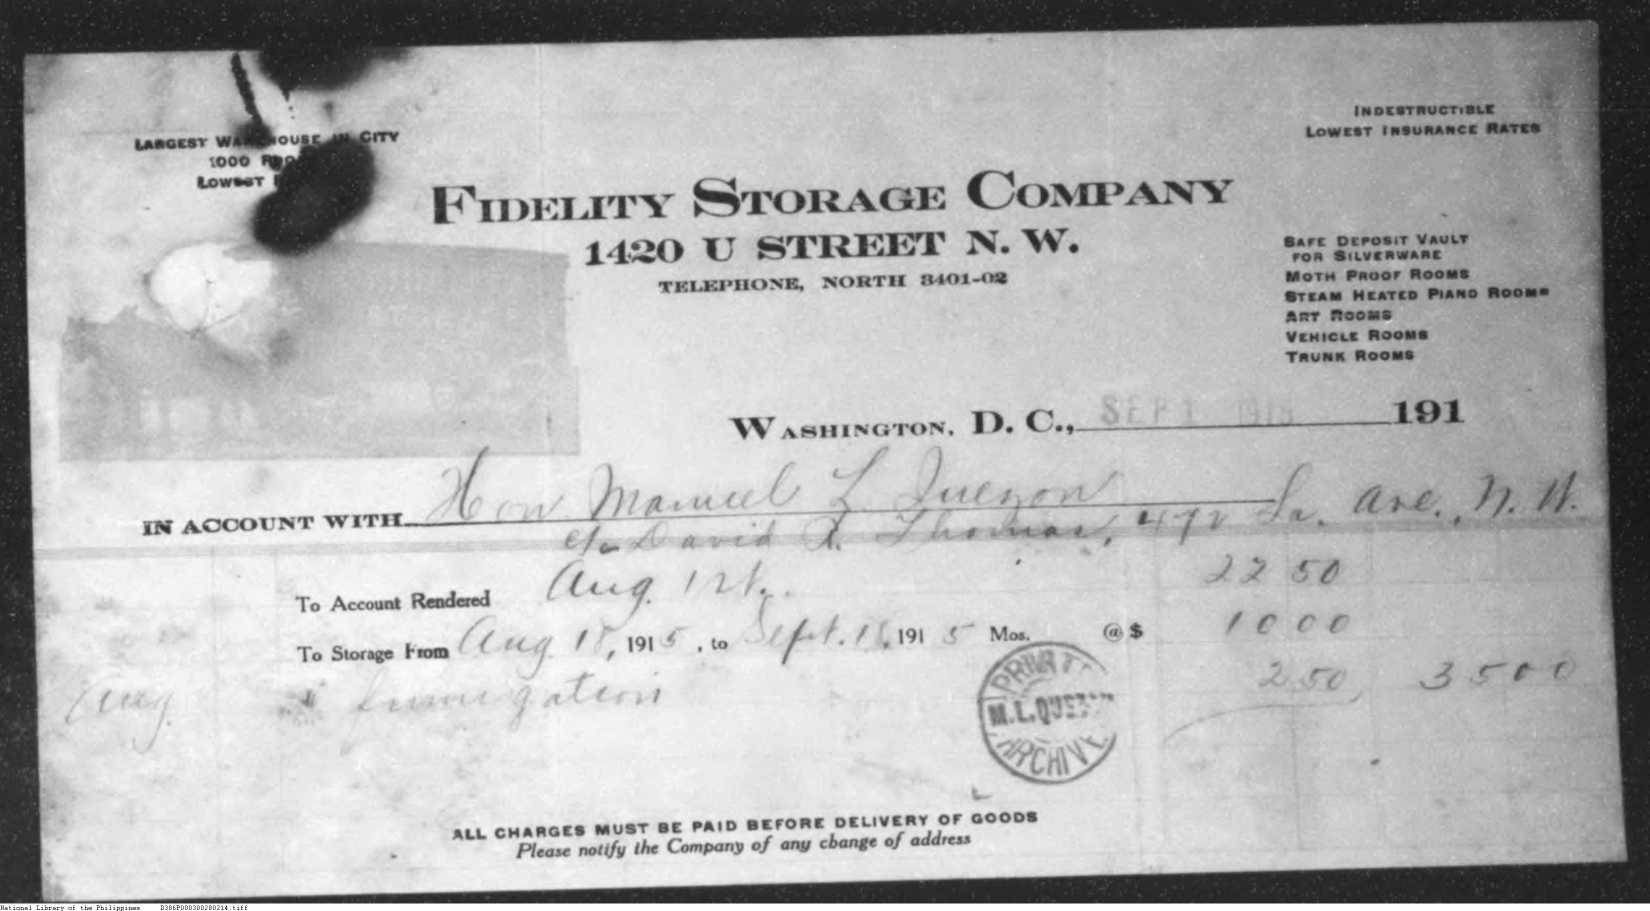 LARGEST WAREHOUSE IN CITY
1000
LOWEST
INDESTRUCTIBLE
LOWEST INSURANCE RATES
FIDELITY STORAGE COMPANY
1420 U STREET N. W.
TELEPHONE, NORTH 3401-02
SAFE DEPOSIT VAULT
FOR SILVERWARE
MOTH PROOF ROOMS
STEAM HEATED PIANO ROOMS
ART ROOMS
VEHICLE ROOMS
TRUNK ROOMS
WASHINGTON, D. C., SEP 1 191
IN ACCOUNT WITH Hon Manuel L Quezon
c/o David A. Thomas, 472 La. Ave., N. W.
To Account Rendered Aug. 1st. 22 50
To Storage From Aug 18, 1915, to Sept. 18, 1915 Mos. @ $ 10 00
Aug. " fumigation 2 50 35 00
PRIVATE
M.L.QUEZON
ARCHIVE
ALL CHARGES MUST BE PAID BEFORE DELIVERY OF GOODS
Please notify the Company of any change of address
National Library of the Philippines D386P000300280214.tiff